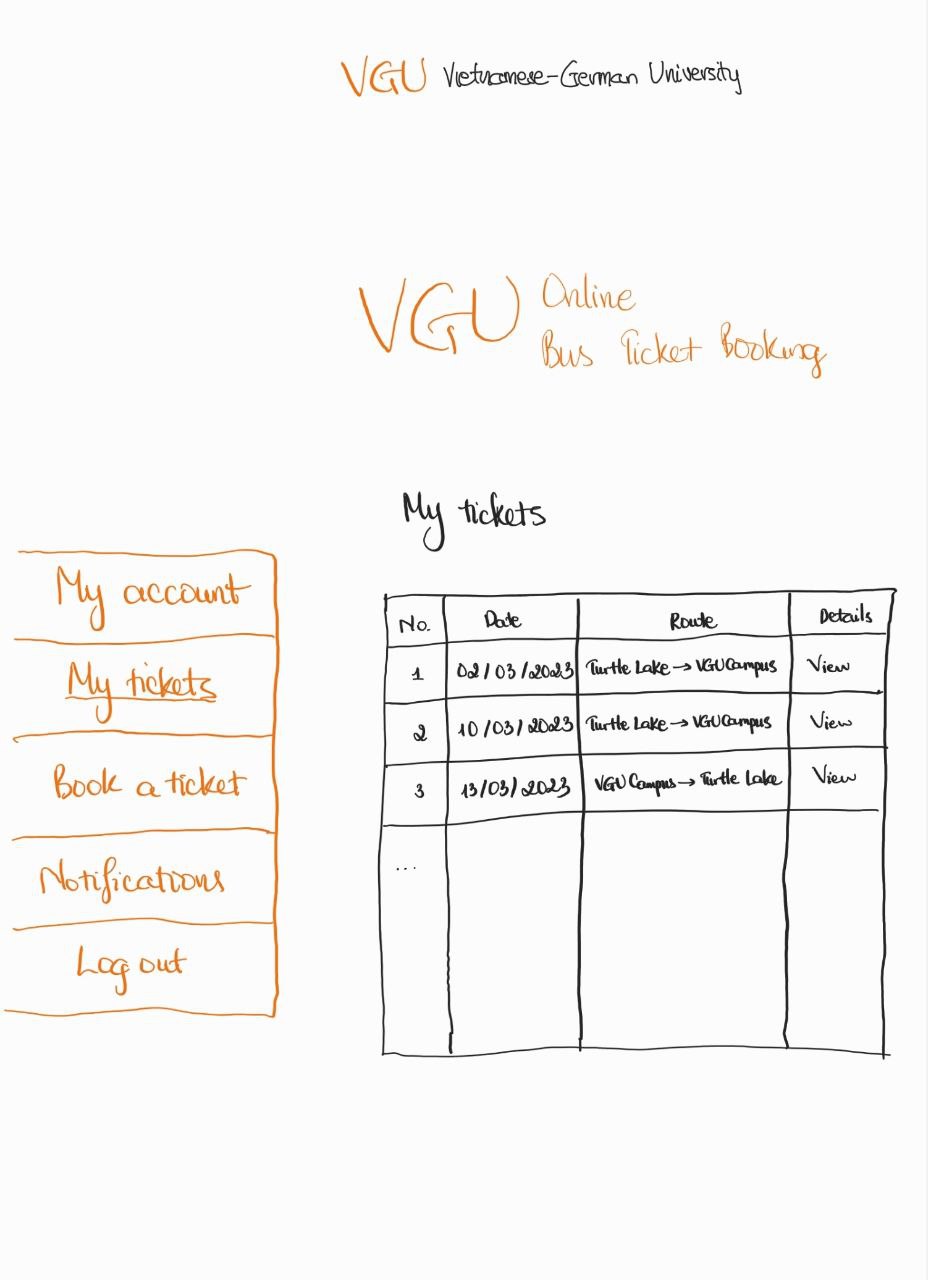 VGU Vietnamese-German University
VGU Online
Bus Ticket Booking
My tickets
My account
My tickets
Book a ticket
Notifications
Log out
No. Date Route Details
1 02/03/2023 Turtle Lake → VGU Campus View
2 10/03/2023 Turtle Lake → VGU Campus View
3 13/03/2023 VGU Campus → Turtle Lake View
...